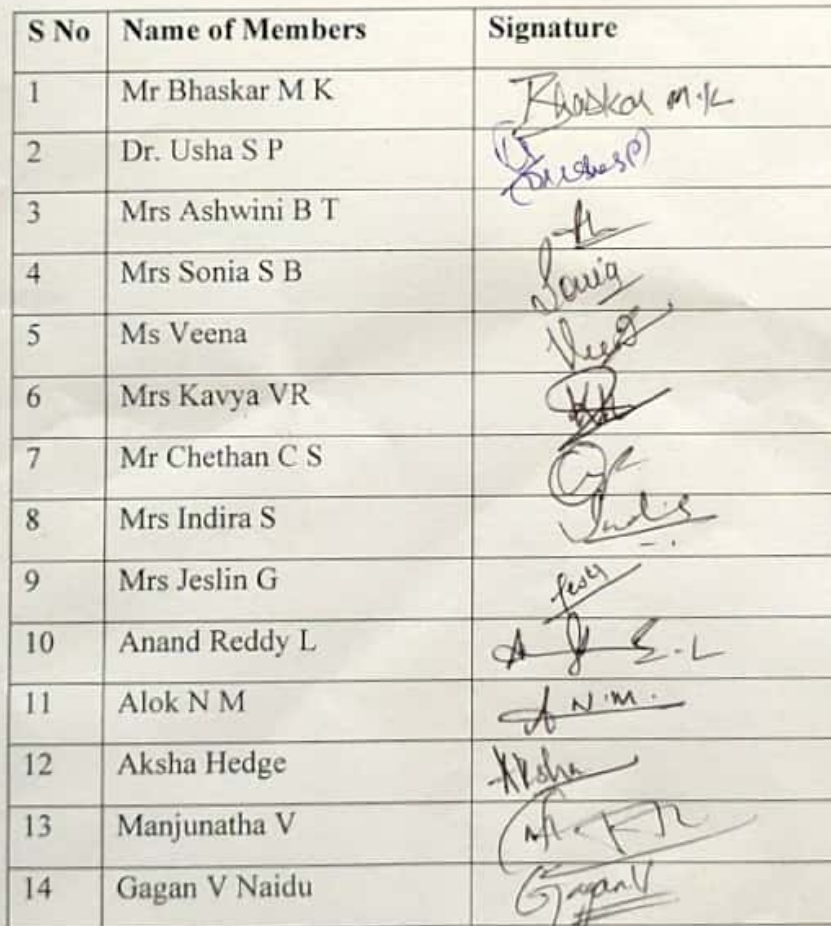 S No Name of Members Signature
1 Mr Bhaskar M K Bhaskar M.K
2 Dr. Usha S P
3 Mrs Ashwini B T
4 Mrs Sonia S B Sonia
5 Ms Veena
6 Mrs Kavya VR
7 Mr Chethan C S
8 Mrs Indira S
9 Mrs Jeslin G
10 Anand Reddy L
11 Alok N M A N.M.
12 Aksha Hedge Aksha
13 Manjunatha V
14 Gagan V Naidu Gagan.V